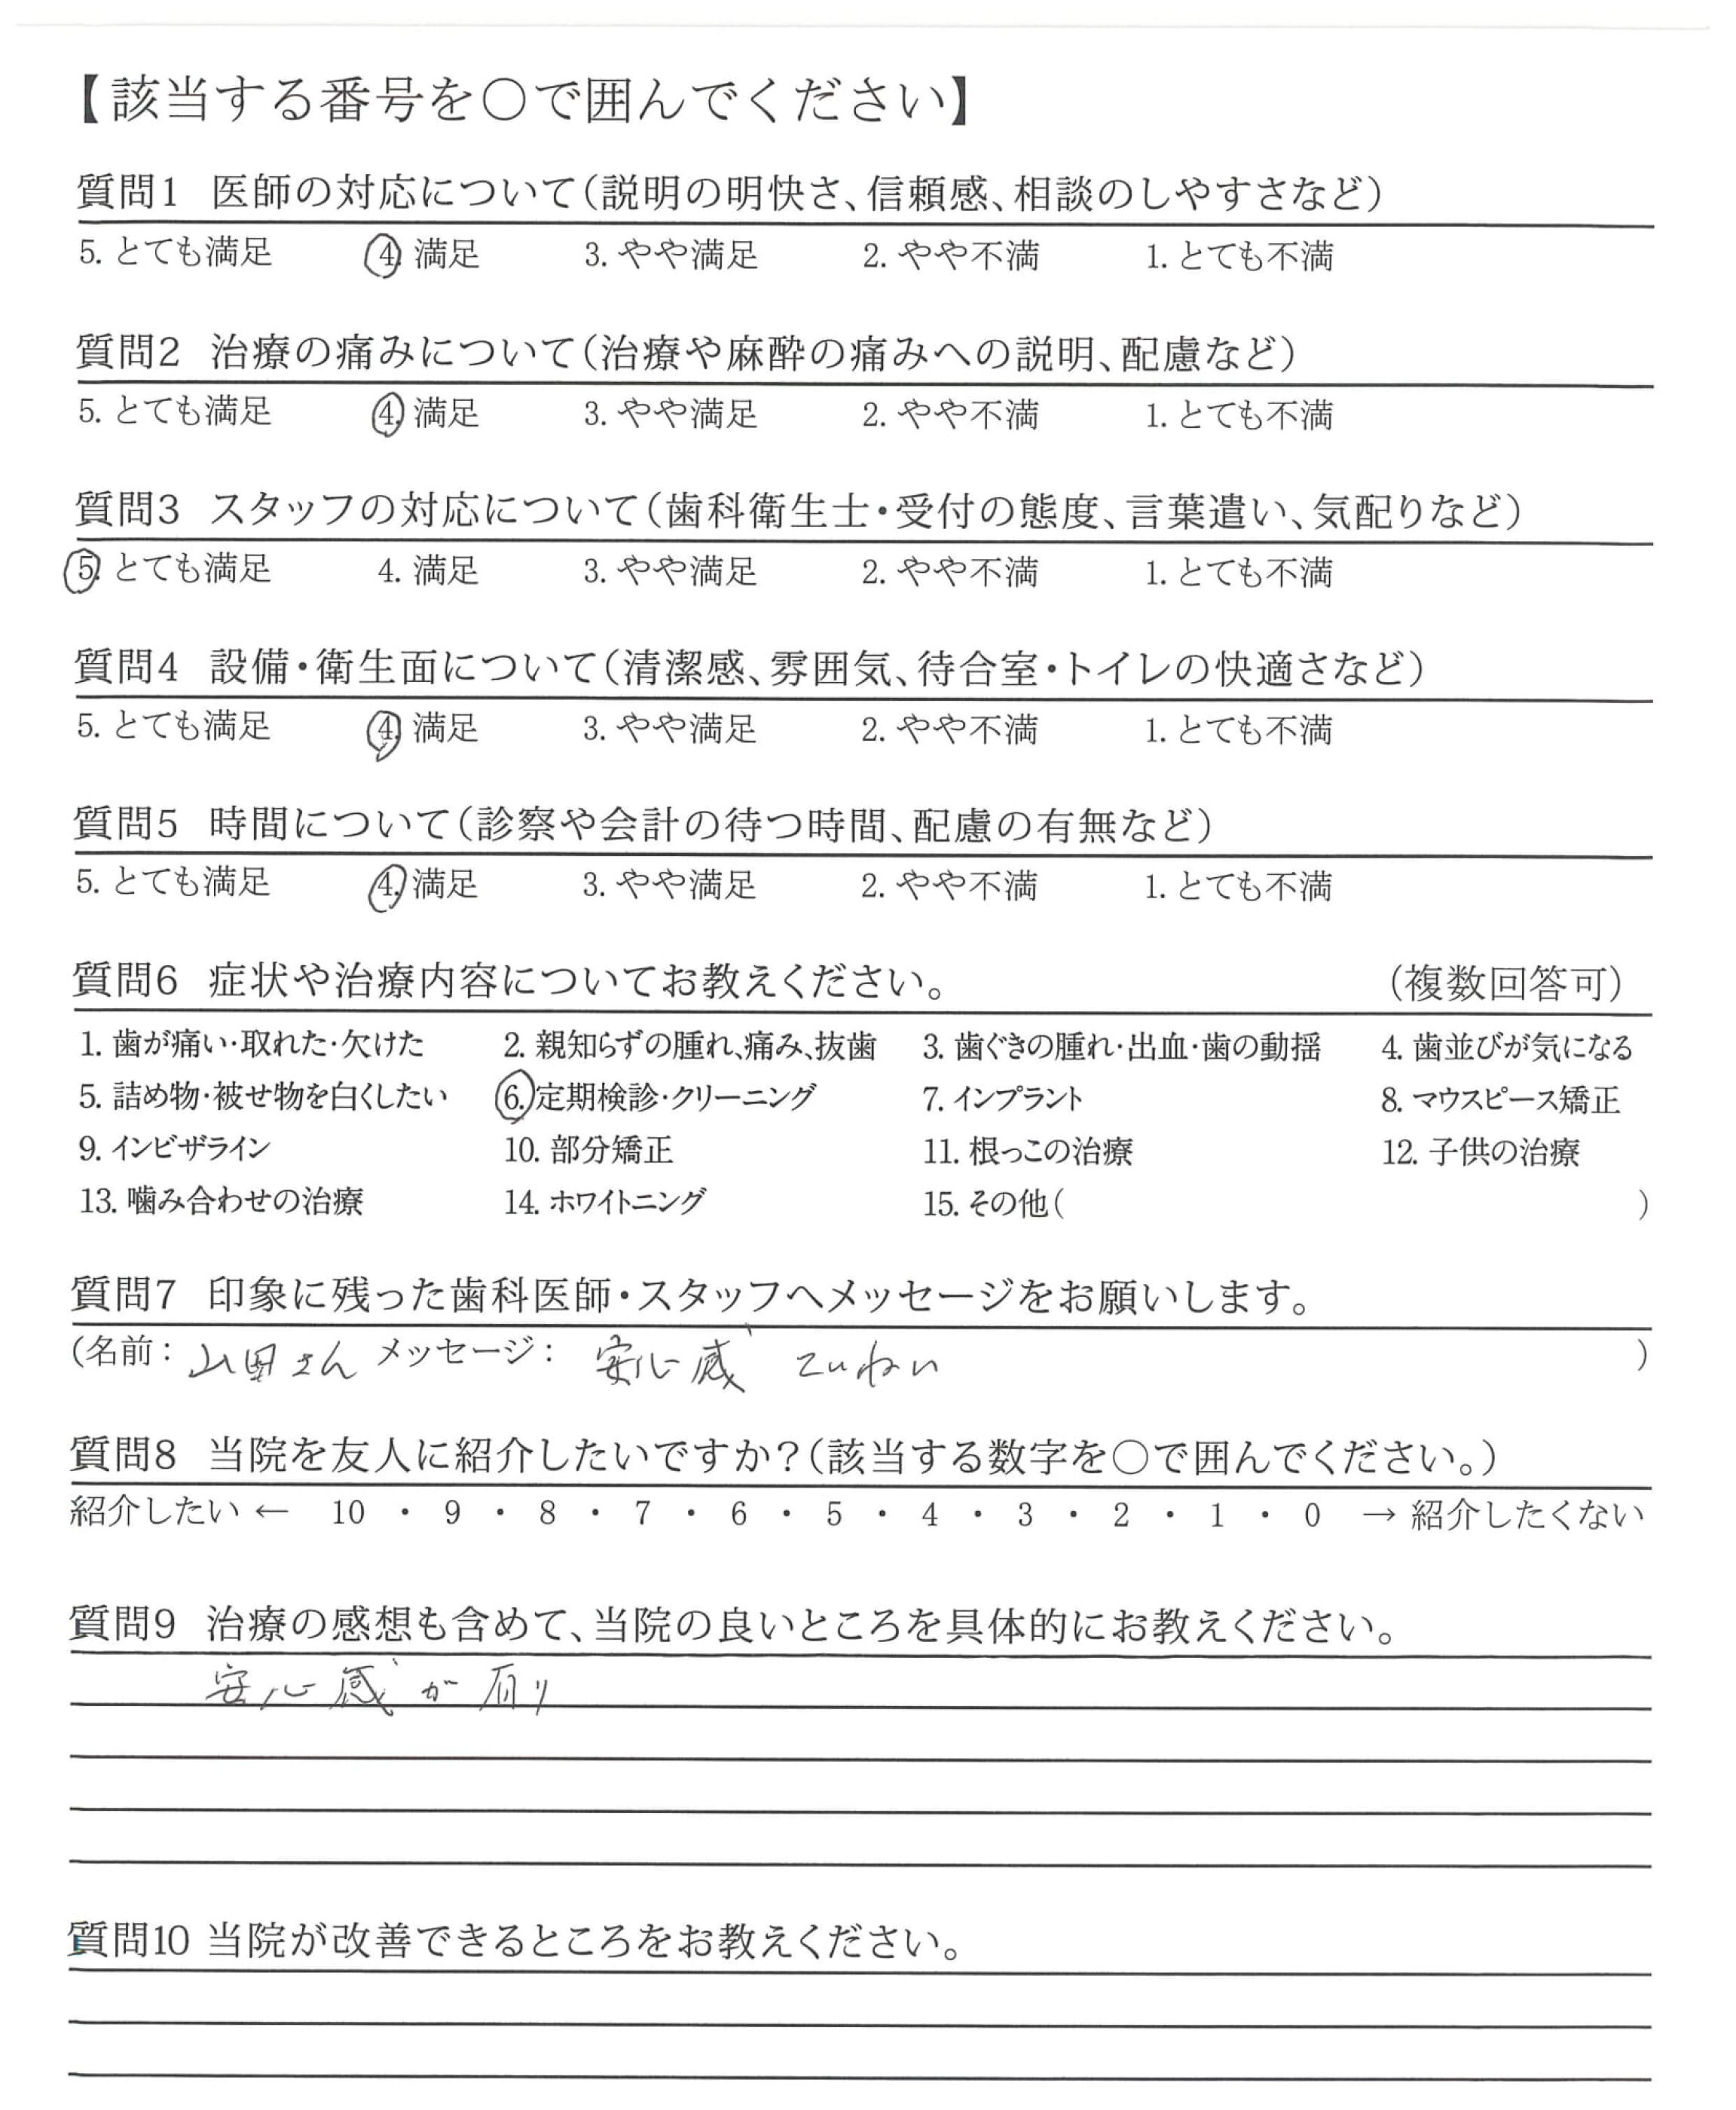 【該当する番号を○で囲んでください】
質問1 医師の対応について(説明の明快さ、信頼感、相談のしやすさなど)
5. とても満足 4. 満足 3. やや満足 2. やや不満 1. とても不満
質問2 治療の痛みについて(治療や麻酔の痛みへの説明、配慮など)
5. とても満足 4. 満足 3. やや満足 2. やや不満 1. とても不満
質問3 スタッフの対応について(歯科衛生士・受付の態度、言葉遣い、気配りなど)
5. とても満足 4. 満足 3. やや満足 2. やや不満 1. とても不満
質問4 設備・衛生面について(清潔感、雰囲気、待合室・トイレの快適さなど)
5. とても満足 4. 満足 3. やや満足 2. やや不満 1. とても不満
質問5 時間について(診察や会計の待つ時間、配慮の有無など)
5. とても満足 4. 満足 3. やや満足 2. やや不満 1. とても不満
質問6 症状や治療内容についてお教えください。 (複数回答可)
1. 歯が痛い・取れた・欠けた 2. 親知らずの腫れ、痛み、抜歯 3. 歯ぐきの腫れ・出血・歯の動揺 4. 歯並びが気になる
5. 詰め物・被せ物を白くしたい 6. 定期検診・クリーニング 7. インプラント 8. マウスピース矯正
9. インビザライン 10. 部分矯正 11. 根っこの治療 12. 子供の治療
13. 噛み合わせの治療 14. ホワイトニング 15. その他( )
質問7 印象に残った歯科医師・スタッフへメッセージをお願いします。
(名前: 山田さん メッセージ: 安心感 ていねい )
質問8 当院を友人に紹介したいですか?(該当する数字を○で囲んでください。)
紹介したい ← 10 ・ 9 ・ 8 ・ 7 ・ 6 ・ 5 ・ 4 ・ 3 ・ 2 ・ 1 ・ 0 → 紹介したくない
質問9 治療の感想も含めて、当院の良いところを具体的にお教えください。
安心感が有り
質問10 当院が改善できるところをお教えください。